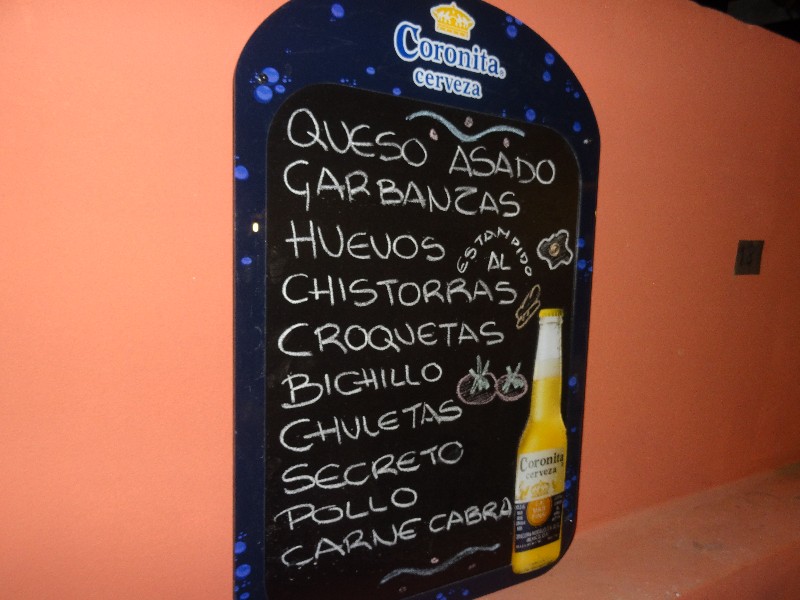 Coronita
cerveza
QUESO ASADO
GARBANZAS
HUEVOS ESTAMPIDO AL
CHISTORRAS
CROQUETAS
BICHILLO
CHULETAS
SECRETO
POLLO
CARNE CABRA
Coronita
cerveza